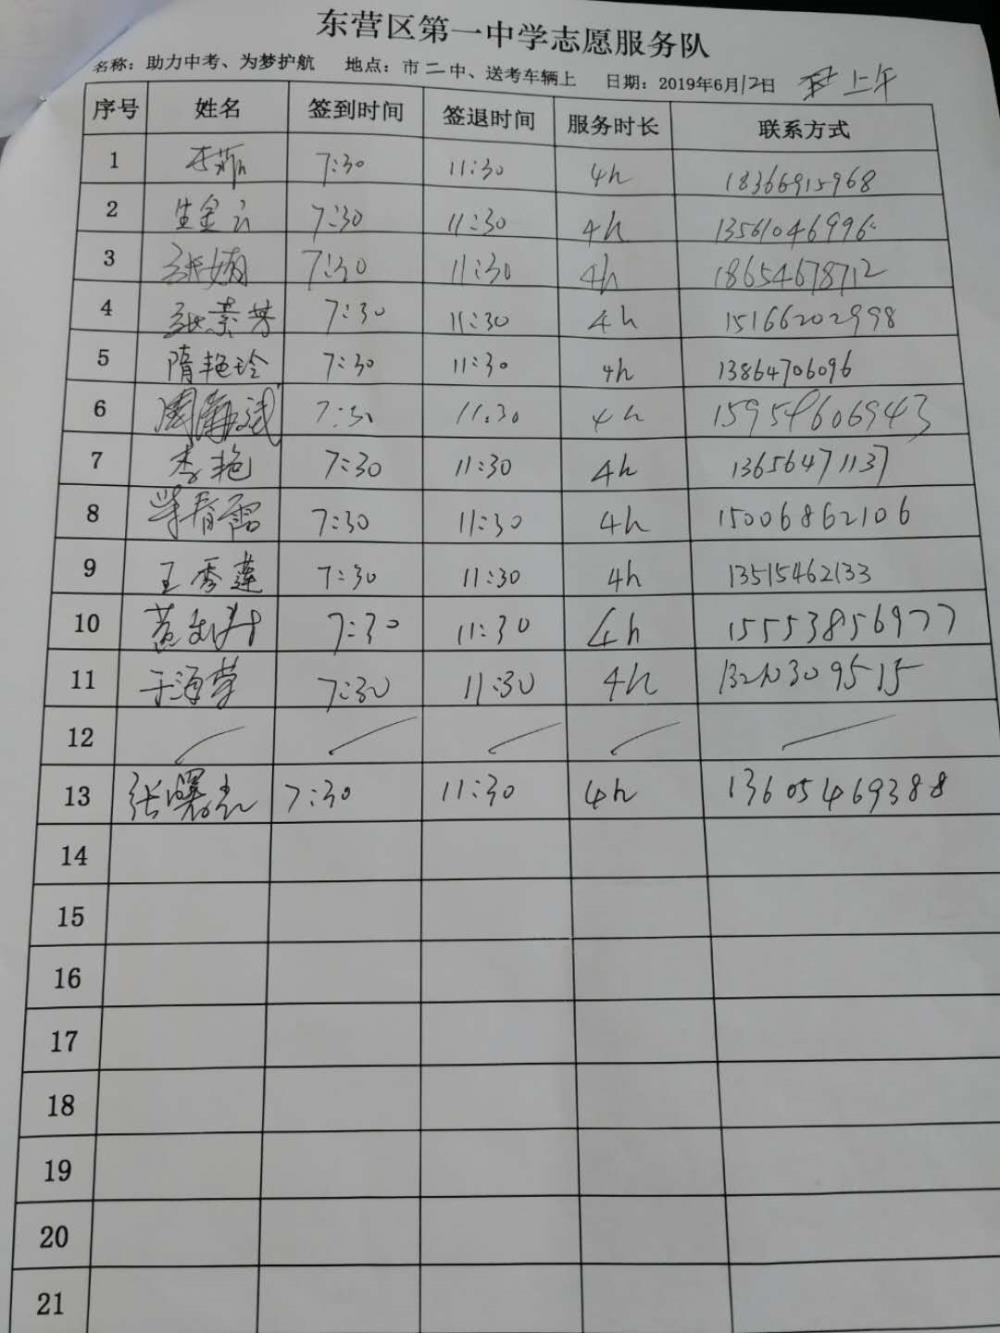 东营区第一中学志愿服务队
名称：助力中考、为梦护航 地点：市二中、送考车辆上 日期：2019年6月12日 上午
序号 姓名 签到时间 签退时间 服务时长 联系方式
1 7:30 11:30 4h 18366915968
2 生金云 7:30 11:30 4h 13561046996
3 张婧 7:30 11:30 4h 18654678712
4 张素芳 7:30 11:30 4h 15166202998
5 隋艳玲 7:30 11:30 4h 13864706096
6 7:30 11:30 4h 15954606943
7 李艳 7:30 11:30 4h 13656471137
8 7:30 11:30 4h 15006862106
9 王秀莲 7:30 11:30 4h 13515462133
10 7:30 11:30 4h 15553856977
11 于海荣 7:30 11:30 4h
12
13 张曙光 7:30 11:30 4h 13605469388
14
15
16
17
18
19
20
21